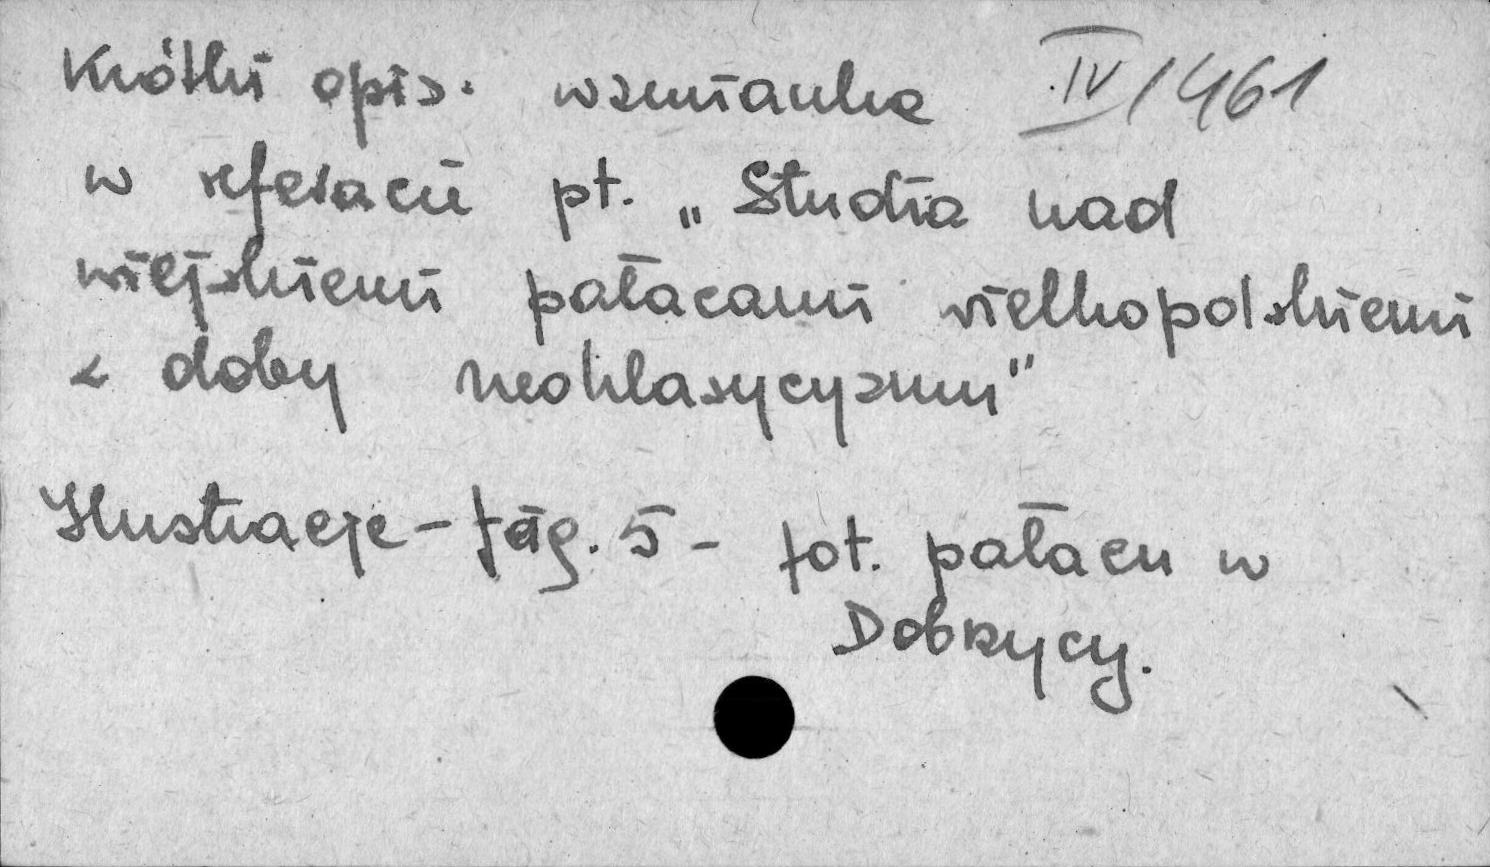 Krótki opis. wzmianka IV/461
w referacie pt. „Studia nad
wiejskiemi pałacami wielkopolskiemi
z doby neoklasycyzmu"
Ilustracje - fig. 5 - fot. pałacu w
Dobrzycy.